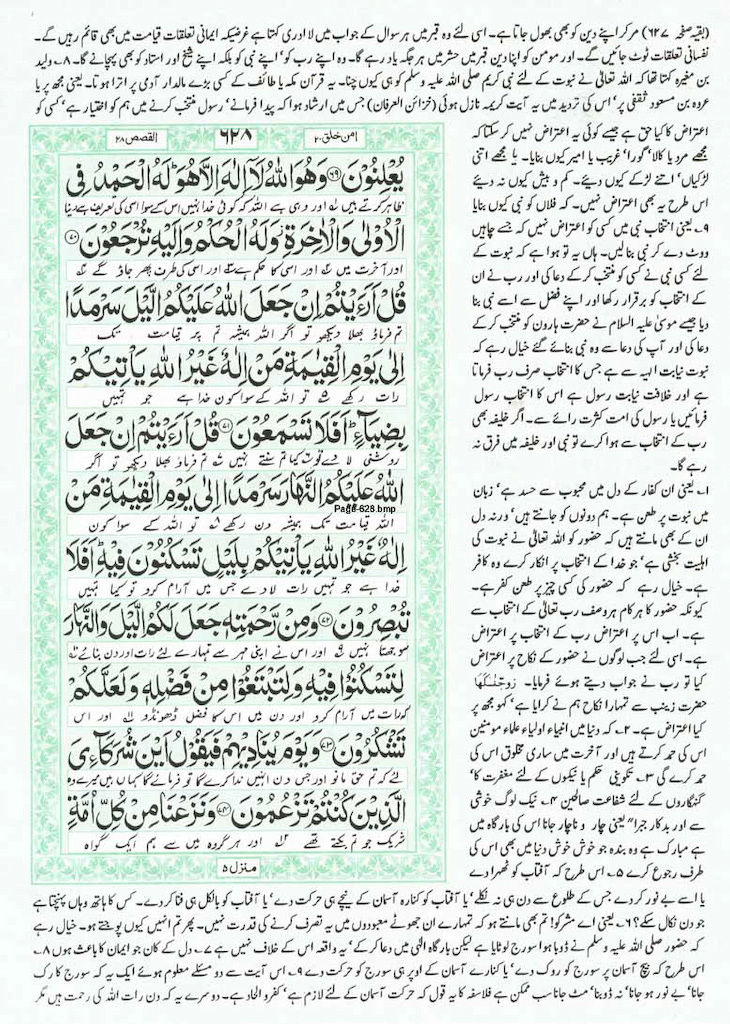 (بقیہ صفحہ ۶۲۷) مر کر اپنے دین کو بھی بھول جاتا ہے۔ اسی لئے وہ قبر میں ہر سوال کے جواب میں لا ادری کہتا ہے غرضیکہ ایمانی تعلقات قیامت میں بھی قائم رہیں گے۔
نفسانی تعلقات ٹوٹ جائیں گے۔ اور مومن کو اپنا دین قبر میں حشر میں ہر جگہ یاد رہے گا۔ وہ اپنے رب کو' اپنے نبی کو بلکہ اپنے شیخ اور استاد کو بھی پہچانے گا۔ ۸۔ ولید
بن مغیرہ کہتا تھا کہ اللہ تعالیٰ نے نبوت کے لئے نبی کریم صلی اللہ علیہ وسلم کو ہی کیوں چنا۔ یہ قرآن مکہ یا طائف کے کسی بڑے مالدار آدمی پر اترا ہوتا۔ یعنی مجھ پر یا
عروہ بن مسعود ثقفی پر' اس کی تردید میں یہ آیت کریمہ نازل ہوئی (خزائن العرفان) جس میں ارشاد ہوا کہ پیدا فرمانے' رسول منتخب کرنے میں ہم کو اختیار ہے' کسی کو
اعتراض کا کیا حق ہے جیسے کوئی یہ اعتراض نہیں کر سکتا کہ
مجھے مرد یا کالا' گورا' غریب یا امیر کیوں بنایا۔ یا مجھے اتنی
لڑکیاں' اتنے لڑکے کیوں دیئے۔ کم و بیش کیوں نہ دیئے
اس طرح یہ بھی اعتراض نہیں۔ کہ فلاں کو نبی کیوں بنایا
۹۔ یعنی انتخاب نبی میں کسی کو اعتراض نہیں کہ جسے چاہیں
ووٹ دے کر نبی بنالیں۔ ہاں یہ تو ہوا ہے کہ نبوت کے
لئے کسی نبی نے کسی کو منتخب کر کے دعا کی اور رب نے ان
کے انتخاب کو برقرار رکھا اور اپنے فضل سے اسے نبی بنا
دیا جیسے موسیٰ علیہ السلام نے حضرت ہارون کو منتخب کر کے
دعا کی اور آپ کی دعا سے وہ نبی بنائے گئے خیال رہے کہ
نبوت نیابت الہیہ سے ہے جس کا انتخاب صرف رب فرماتا
ہے اور خلافت نیابت رسول ہے اس کا انتخاب رسول
فرمائیں یا رسول کی امت کثرت رائے سے۔ اگر خلیفہ بھی
رب کے انتخاب سے ہوا کرے تو نبی اور خلیفہ میں فرق نہ
رہے گا۔
۱۔ یعنی ان کفار کے دل میں محبوب سے حسد ہے' زبان
میں نبوت پر طعن ہے۔ ہم دونوں کو جانتے ہیں' ورنہ دل
ان کے بھی مانتے ہیں کہ حضور کو اللہ تعالیٰ نے نبوت کی
اہلیت بخشی ہے' جو خدا کے انتخاب پر انکار کرے وہ کافر
ہے۔ خیال رہے کہ حضور کی کسی چیز پر طعن کفر ہے۔
کیونکہ حضور کا ہر کام ہر وصف رب تعالیٰ کے انتخاب سے
ہے۔ اب اس پر اعتراض رب کے انتخاب پر اعتراض
ہے۔ اسی لئے جب لوگوں نے حضور کے نکاح پر اعتراض
کیا تو رب نے جواب دیتے ہوئے فرمایا۔ زَوَّجْنٰكَهَا
حضرت زینب سے تمہارا نکاح ہم نے کرایا ہے' کہو مجھ پر
کیا اعتراض ہے۔ ۲۔ کہ دنیا میں انبیاء اولیاء علماء مومنین
اس کی حمد کرتے ہیں اور آخرت میں ساری مخلوق اس کی
حمد کرے گی ۳۔ تکوینی حکم یا نیکوں کے لئے مغفرت کا'
گنہگاروں کے لئے شفاعت صالحین ۴۔ نیک لوگ خوشی
سے اور بدکار جبرا" یعنی چار و ناچار جانا اس کی بارگاہ میں
ہے مبارک ہے وہ بندہ جو خوش خوش دنیا میں بھی اس کی
طرف رجوع کرے ۵۔ اس طرح کہ آفتاب کو ٹھہرا دے
القصص ۲۸ ۶۲۸ امن خلق ۲۰
يُعْلِنُوْنَ ۶۹ وَهُوَ اللّٰهُ لَاۤ اِلٰهَ اِلَّا هُوَ ؕ لَهُ الْحَمْدُ فِی
ظاہر کرتے ہیں اور وہی ہے اللہ کہ کوئی خدا نہیں اس کے سوا اسی کی تعریف ہے دنیا
الْاُوْلٰى وَالْاٰخِرَةِ وَلَهُ الْحُكْمُ وَاِلَيْهِ تُرْجَعُوْنَ ۷۰
اور آخرت میں اور اسی کا حکم ہے اور اسی کی طرف پھر جاؤ گے
قُلْ اَرَءَيْتُمْ اِنْ جَعَلَ اللّٰهُ عَلَيْكُمُ الَّيْلَ سَرْمَدًا
تم فرماؤ بھلا دیکھو تو اگر اللہ ہمیشہ تم پر قیامت تک
اِلٰى يَوْمِ الْقِيٰمَةِ مَنْ اِلٰهٌ غَيْرُ اللّٰهِ يَاْتِيْكُمْ
رات رکھے تو اللہ کے سوا کون خدا ہے جو تمہیں
بِضِيَآءٍ ؕ اَفَلَا تَسْمَعُوْنَ ۷۱ قُلْ اَرَءَيْتُمْ اِنْ جَعَلَ
روشنی لا دے تو کیا تم سنتے نہیں تم فرماؤ بھلا دیکھو تو اگر
اللّٰهُ عَلَيْكُمُ النَّهَارَ سَرْمَدًا اِلٰى يَوْمِ الْقِيٰمَةِ مَنْ
Page-628.bmp
اللہ قیامت تک ہمیشہ دن رکھے تو اللہ کے سوا کون
اِلٰهٌ غَيْرُ اللّٰهِ يَاْتِيْكُمْ بِلَيْلٍ تَسْكُنُوْنَ فِيْهِ ؕ اَفَلَا
خدا ہے جو تمہیں رات لا دے جس میں آرام کرو تو کیا تمہیں
تُبْصِرُوْنَ ۷۲ وَمِنْ رَّحْمَتِهٖ جَعَلَ لَكُمُ الَّيْلَ وَالنَّهَارَ
سوجھتا نہیں اور اس نے اپنی مہر سے تمہارے لئے رات اور دن بنائے
لِتَسْكُنُوْا فِيْهِ وَلِتَبْتَغُوْا مِنْ فَضْلِهٖ وَلَعَلَّكُمْ
کہ رات میں آرام کرو اور دن میں اس کا فضل ڈھونڈو اور اس
تَشْكُرُوْنَ ۷۳ وَيَوْمَ يُنَادِيْهِمْ فَيَقُوْلُ اَيْنَ شُرَكَآءِیَ
لئے کہ تم حق مانو اور جس دن انہیں ندا کرے گا تو فرمائے گا کہاں ہیں میرے وہ
الَّذِيْنَ كُنْتُمْ تَزْعُمُوْنَ ۷۴ وَنَزَعْنَا مِنْ كُلِّ اُمَّةٍ
شریک جو تم بکتے تھے اور ہر گروہ میں سے ہم ایک گواہ
منزل ۵
یا اسے بے نور کر دے' جس کے طلوع سے دن ہی نہ نکلے' یا آفتاب کو کنارہ آسمان کے نیچے ہی حرکت دے' یا آفتاب کو بالکل ہی فنا کر دے۔ کس کا ہاتھ وہاں پہنچتا ہے
جو دن نکال سکے؟ ۶۔ یعنی اے مشرکو! تم بھی مانتے ہو کہ تمہارے ان جھوٹے معبودوں میں یہ تصرف کرنے کی قدرت نہیں۔ پھر تم انہیں کیوں پوجتے ہو۔ خیال رہے
کہ حضور صلی اللہ علیہ وسلم نے ڈوبا ہوا سورج لوٹایا ہے لیکن بارگاہ الٰہی میں دعا کر کے' یہ واقعہ اس کے خلاف نہیں ہے ۷۔ دل کے کان جو ایمان کا باعث ہوں ۸۔
اس طرح کہ بیچ آسمان پر سورج کو روک دے' یا کنارے آسمان کے اوپر ہی سورج کو حرکت دے ۹۔ اس آیت سے دو مسئلے معلوم ہوئے ایک یہ کہ سورج کا رک
جانا' بے نور ہو جانا' نہ ڈوبنا' مٹ جانا سب ممکن ہے فلاسفہ کا یہ قول کہ حرکت آسمان کے لئے لازم ہے' کفر و الحاد ہے۔ دوسرے یہ کہ دن رات اللہ کی رحمت ہیں مگر